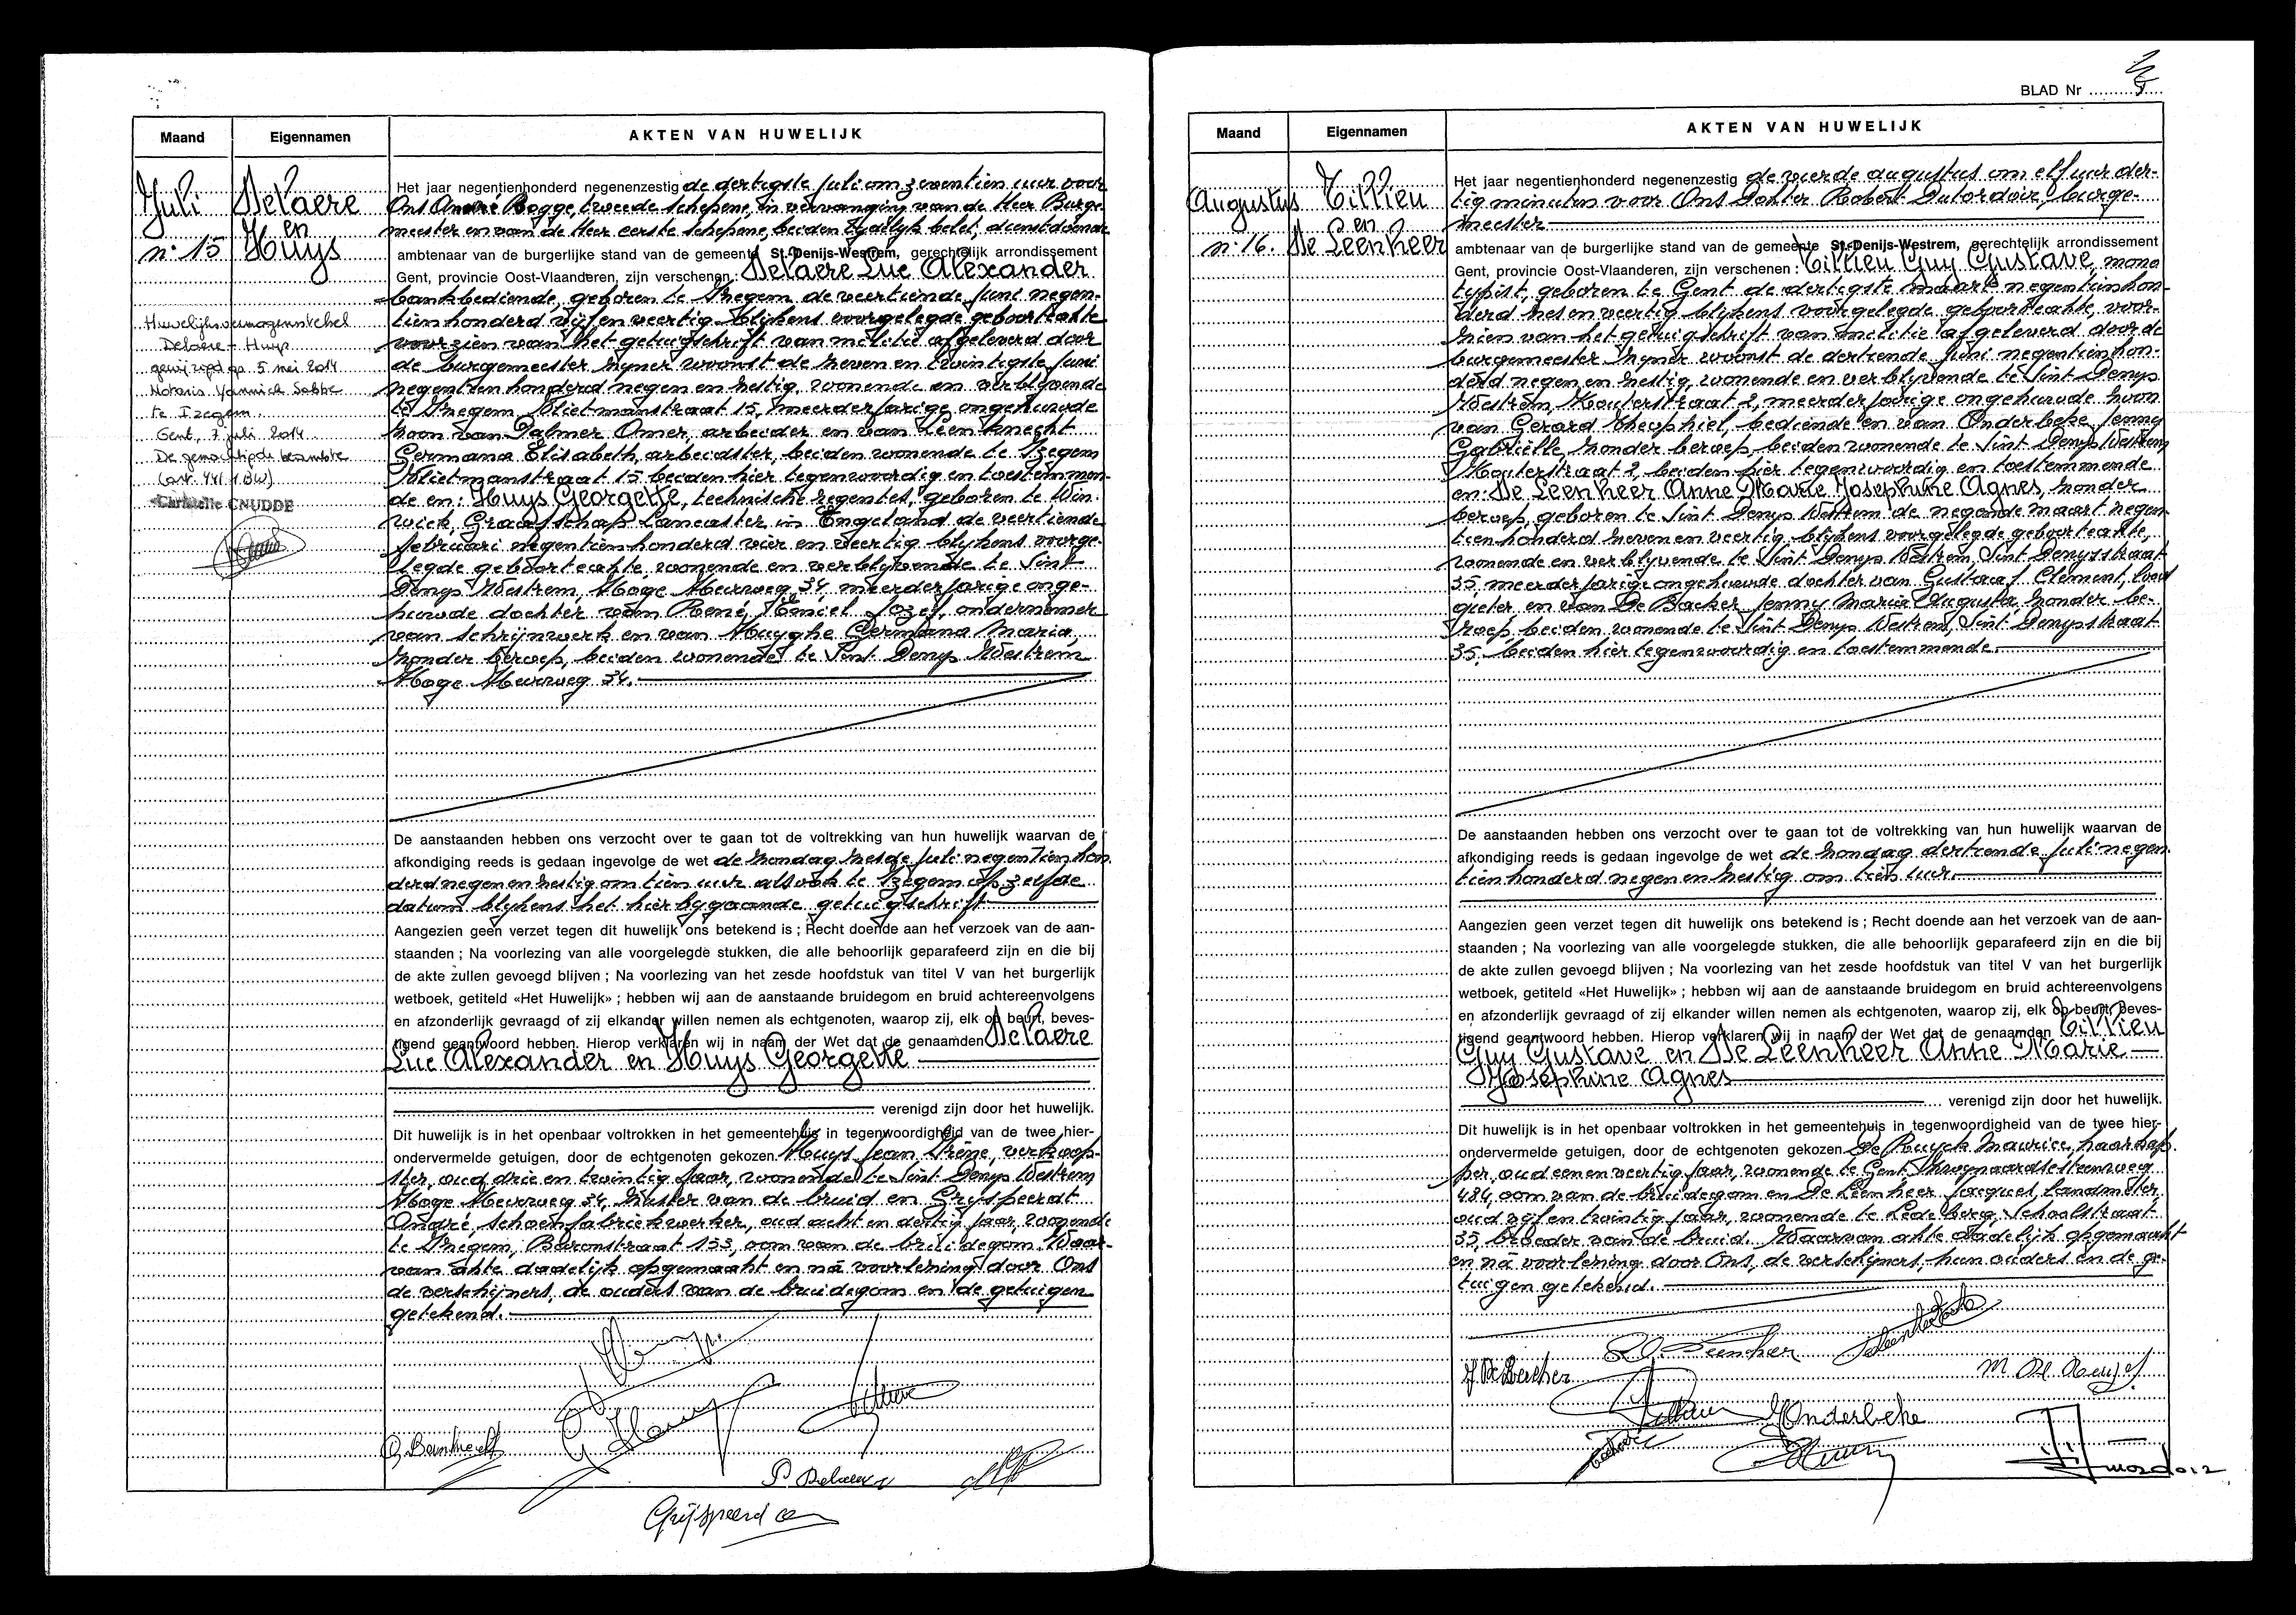 Maand
Eigennamen
AKTEN VAN HUWELIJK
Juli
n° 15
Delaere
en
Huys
Huwelijksvermogensstelsel
Delaere - Huys
gewijzigd op 5 mei 2014
Notaris Yannick Sabbe
te Izegem.
Gent, 7 juli 2014
De gemachtigde beambte
(art. 441 1 BW)
Christelle CNUDDE
Het jaar negentienhonderd negenenzestig de dertigste juli om zeventien uur voor
Ons André Bogge, tweede schepene, in vervanging van de Heer Burge-
meester en van de Heer eerste schepene, beiden tijdelijk belet, dienstdoende
ambtenaar van de burgerlijke stand van de gemeente St.-Denijs-Westrem, gerechtelijk arrondissement
Gent, provincie Oost-Vlaanderen, zijn verschenen : Delaere Luc Alexander
bankbediende, geboren te Izegem de veertiende juni negen-
tienhonderd vijf en veertig blijkens voorgelegde geboorteakte
voorzien van het getuigschrift van militie afgeleverd door
de burgemeester zijner woonst de zeven en twintigste juni
negentienhonderd negen en zestig, wonende en verblijvende
te Izegem Vlietmanstraat 15, meerderjarige ongehuwde
zoon van Palmer Omer, arbeider en van Leenknecht
Germana Elisabeth, arbeidster, beiden wonende te Izegem
Vlietmanstraat 15 beiden hier tegenwoordig en toestemmen-
de en : Huys Georgette, technische regentes, geboren te Win-
wick, Graafschap Lancaster in Engeland de veertiende
februari negentienhonderd vier en veertig blijkens voorge-
legde geboorteakte, wonende en verblijvende te Sint
Denys Westrem, Hoge Heerweg 34 meerderjarige onge-
huwde dochter van René Emiel Jozef, ondernemer
van schrijnwerk en van Huyghe Germana Maria,
zonder beroep, beiden wonende te Sint Denys Westrem
Hoge Heerweg 34.
De aanstaanden hebben ons verzocht over te gaan tot de voltrekking van hun huwelijk waarvan de
afkondiging reeds is gedaan ingevolge de wet de zondag zesde juli negentienhon-
derd negen en zestig om tien uur alsook te Izegem op zelfde
datum blijkens het hierbijgaande getuigschrift
Aangezien geen verzet tegen dit huwelijk ons betekend is ; Recht doende aan het verzoek van de aan-
staanden ; Na voorlezing van alle voorgelegde stukken, die alle behoorlijk geparafeerd zijn en die bij
de akte zullen gevoegd blijven ; Na voorlezing van het zesde hoofdstuk van titel V van het burgerlijk
wetboek, getiteld «Het Huwelijk» ; hebben wij aan de aanstaande bruidegom en bruid achtereenvolgens
en afzonderlijk gevraagd of zij elkander willen nemen als echtgenoten, waarop zij, elk op beurt, beves-
tigend geantwoord hebben. Hierop verklaren wij in naam der Wet dat de genaamden Delaere
Luc Alexander en Huys Georgette
verenigd zijn door het huwelijk.
Dit huwelijk is in het openbaar voltrokken in het gemeentehuis in tegenwoordigheid van de twee hier-
ondervermelde getuigen, door de echtgenoten gekozen Huys Jean Irène, verkoop-
ster, oud drie en twintig jaar, wonende te Sint Denys Westrem
Hoge Heerweg 34, zuster van de bruid en Gryspeerdt
André, schoenfabriekwerker, oud acht en dertig jaar, wonende
te Izegem, Baronstraat 153, oom van de bruidegom. Waar-
van akte dadelijk opgemaakt en na voorlezing door Ons
de verschijners, de ouders van de bruidegom en de getuigen
getekend.
P Delaere
BLAD Nr
Maand
Eigennamen
AKTEN VAN HUWELIJK
Augustus
n° 16.
Tillieu
en
De Leenheer
Het jaar negentienhonderd negenenzestig de vierde augustus om elf uur der-
tig minuten voor Ons Dokter Robert Dutordoir, burge-
meester
ambtenaar van de burgerlijke stand van de gemeente St.-Denijs-Westrem, gerechtelijk arrondissement
Gent, provincie Oost-Vlaanderen, zijn verschenen : Tillieu Guy Gustave, mono
typist, geboren te Gent de dertigste maart negentienhon-
derd zes en veertig blijkens voorgelegde geboorteakte, voor-
zien van het getuigschrift van militie afgeleverd door de
burgemeester zijner woonst de dertiende juni negentienhon-
derd negen en zestig, wonende en verblijvende te Sint Denys
Westrem, Kouterstraat 2, meerderjarige ongehuwde zoon
van Gerard Theophiel, bediende en van Onderbeke Jenny
Gabriëlle zonder beroep beiden wonende te Sint Denys Westrem
Kouterstraat 2, beiden hier tegenwoordig en toestemmende
en : De Leenheer Anne Marie Josephine Agnes, zonder
beroep, geboren te Sint Denys Westrem de negende maart negen-
tienhonderd zeven en veertig blijkens voorgelegde geboorteakte,
wonende en verblijvende te Sint Denys Westrem, Sint Denysstraat
35, meerderjarige ongehuwde dochter van Gustaaf Clement, lood
gieter en van De Backer Jenny Maria Augusta zonder be-
roep, beiden wonende te Sint Denys Westrem, Sint Denysstraat
35, beiden hier tegenwoordig en toestemmende.
De aanstaanden hebben ons verzocht over te gaan tot de voltrekking van hun huwelijk waarvan de
afkondiging reeds is gedaan ingevolge de wet de zondag dertiende juli negen-
tienhonderd negen en zestig om tien uur.
Aangezien geen verzet tegen dit huwelijk ons betekend is ; Recht doende aan het verzoek van de aan-
staanden ; Na voorlezing van alle voorgelegde stukken, die alle behoorlijk geparafeerd zijn en die bij
de akte zullen gevoegd blijven ; Na voorlezing van het zesde hoofdstuk van titel V van het burgerlijk
wetboek, getiteld «Het Huwelijk» ; hebben wij aan de aanstaande bruidegom en bruid achtereenvolgens
en afzonderlijk gevraagd of zij elkander willen nemen als echtgenoten, waarop zij, elk op beurt, beves-
tigend geantwoord hebben. Hierop verklaren wij in naam der Wet dat de genaamden Tillieu
Guy Gustave en De Leenheer Anne Marie
Josephine Agnes
verenigd zijn door het huwelijk.
Dit huwelijk is in het openbaar voltrokken in het gemeentehuis in tegenwoordigheid van de twee hier-
ondervermelde getuigen, door de echtgenoten gekozen De Ruyck Maurice, haarkap-
per, oud een en veertig jaar, wonende te Gent Zwijnaardsesteenweg
484, oom van de bruidegom en De Leenheer Jacques, landmeter,
oud vijf en twintig jaar, wonende te Ledeberg, Schoolstraat
35, broeder van de bruid. Waarvan akte dadelijk opgemaakt
en na voorlezing door Ons, de verschijners, hun ouders en de ge-
tuigen getekend.
Onderbeke